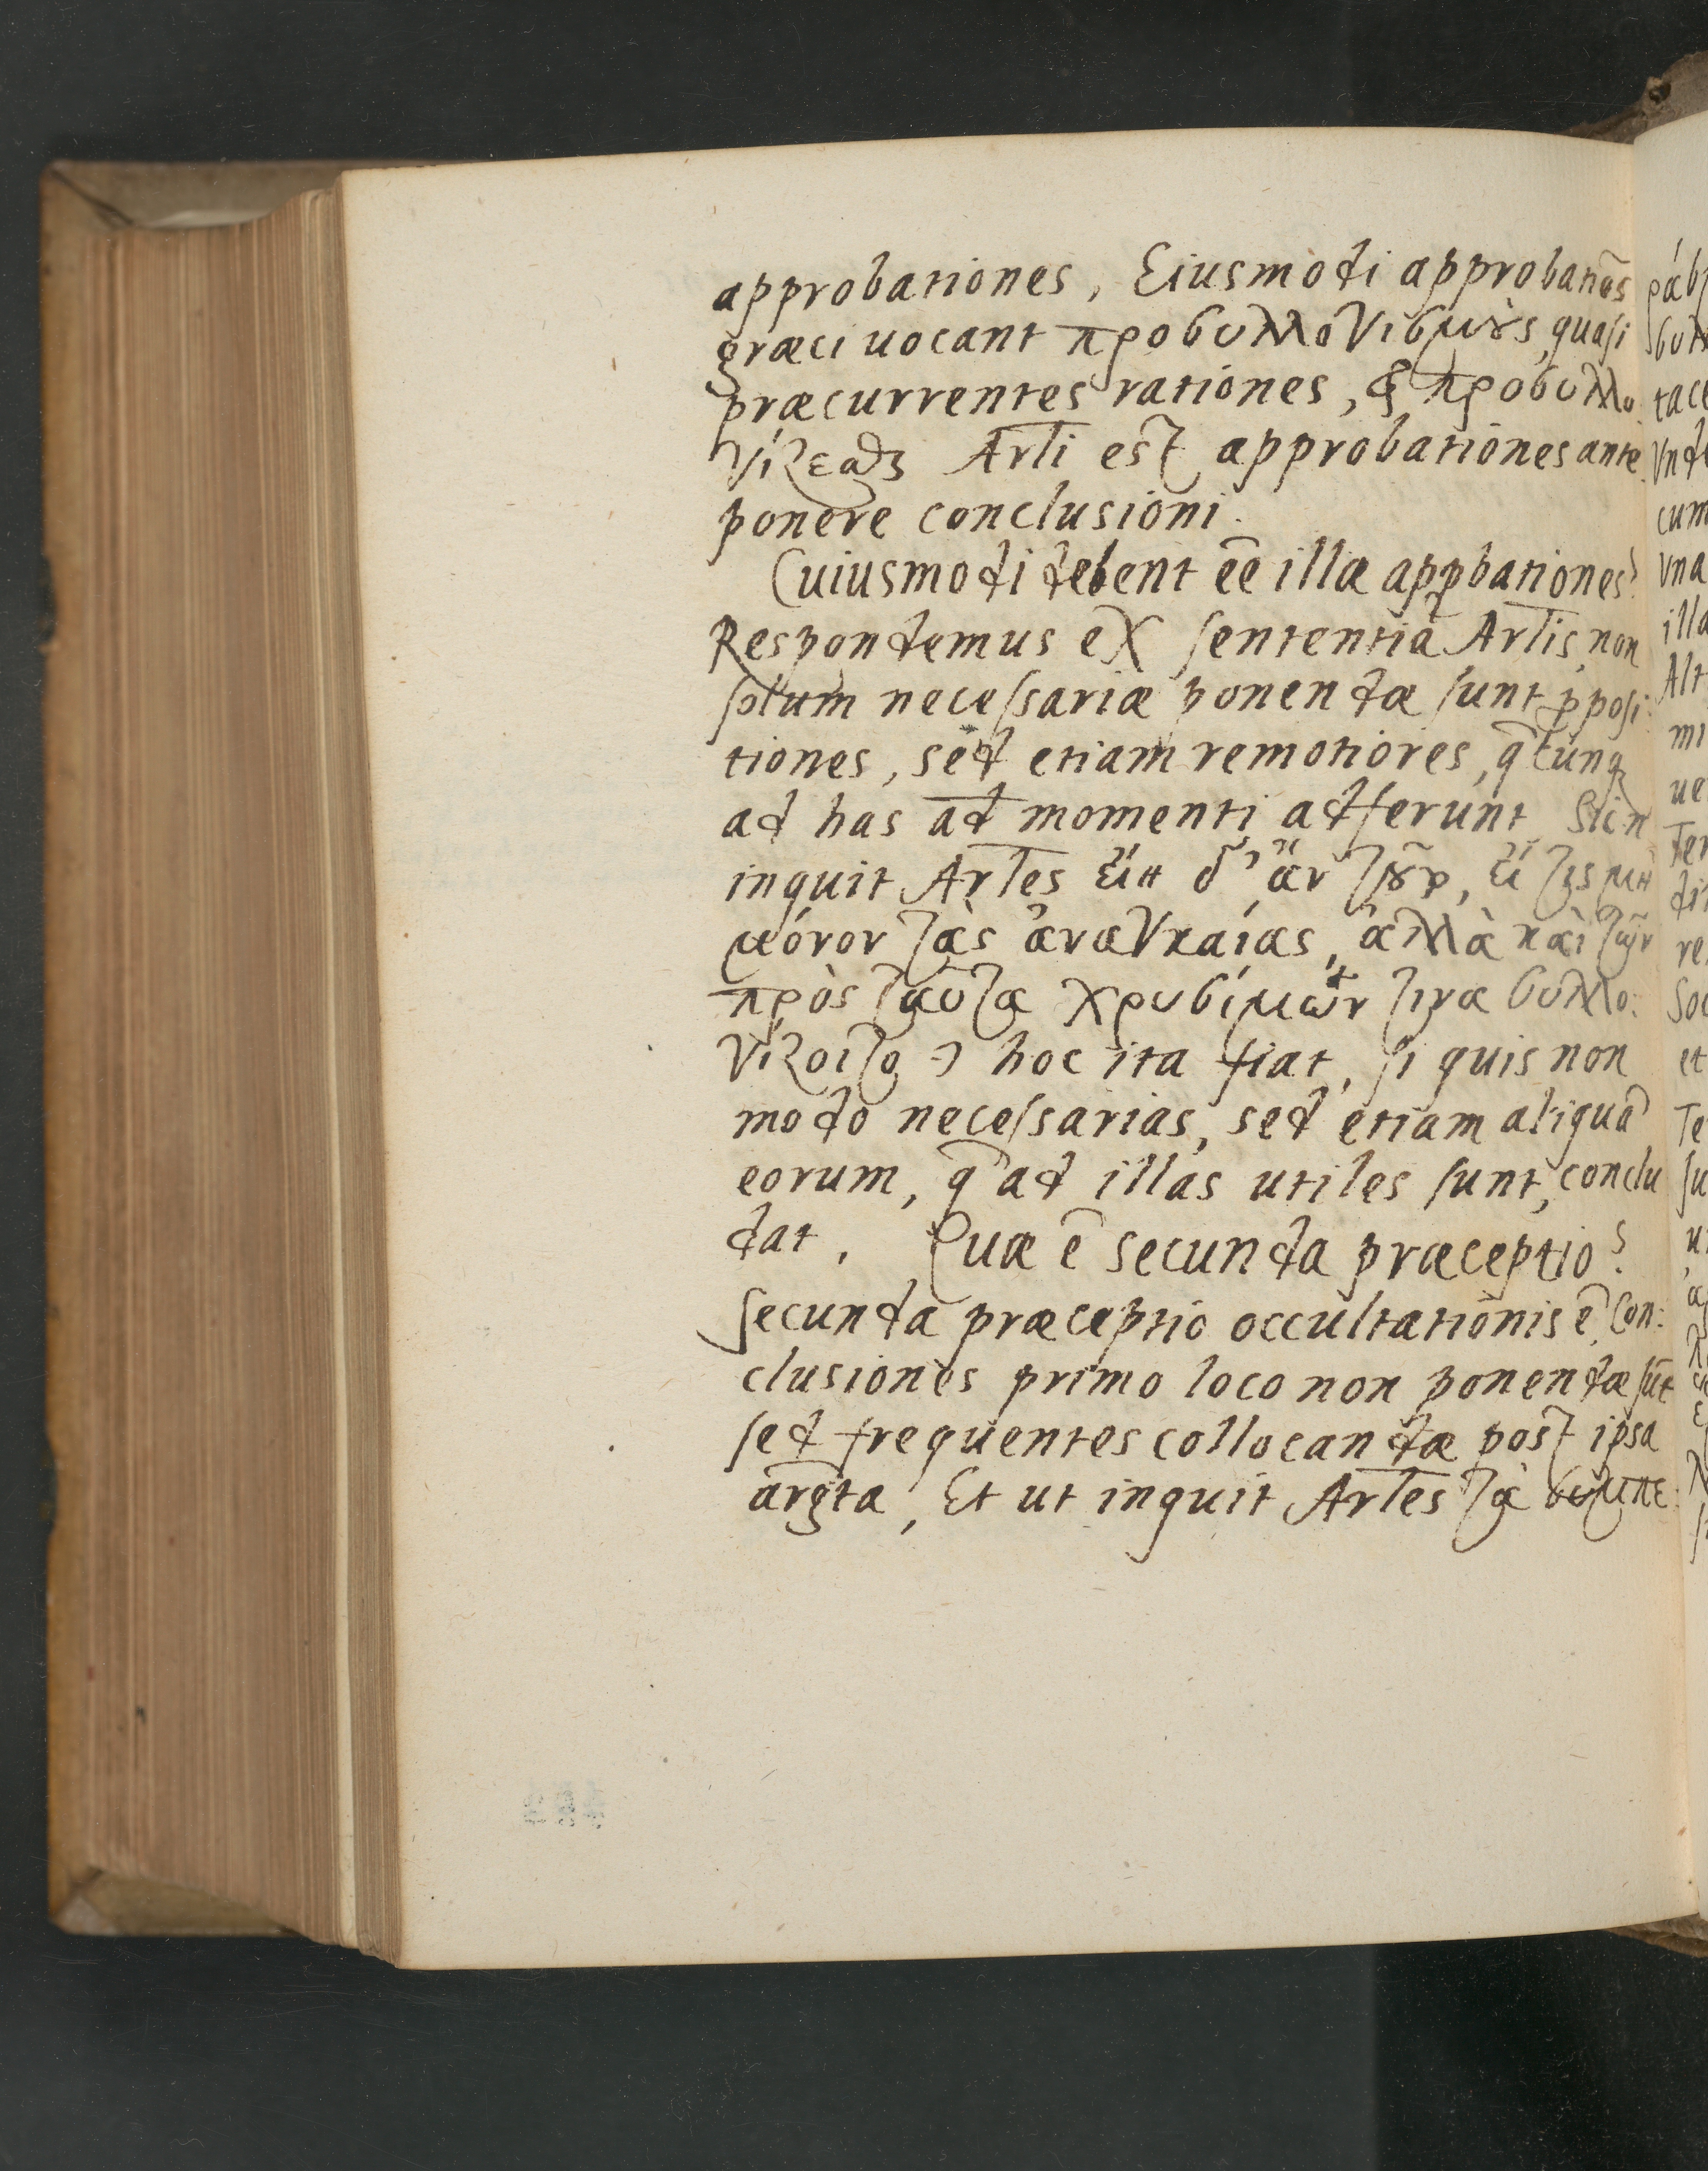 approbationes, Eiusmodi approbatiōēs
græci uocant προσυλλογισμοὺς, quasi
præcurrentes rationes, & προσυλλο
γίζεσθ Arlĩ est approbationes ante
ponere conclusioni.
Cuiusmodi debent eē illæ apꝓbationes?
Respondemus ex sententia Arlis, non
solum necessariæ ponendæ sunt ꝓposi:
tiones, sed etiam remotiores, q̄ cunq
ad has ad momenti adferunt Sic n
inquit Arles εἴη δ' ἂν τοῦτο, εἴ τις μὴ
μόνον τὰς ἀναγκαίας, ἀλλὰ καὶ τῶν
πρὸς ταῦτα χρυσίμων τινα συλλο:
γίζοιτο ↄ hoc ita fiat, si quis non
modo necessarias, sed etiam aliquā
eorum, q̄ ad illas utiles sunt, conclu
dat. Quæ ē secunda præceptio?
Secunda præceptio occultationis ē, Con:
clusiones primo loco non ponendæ sūt
sed frequentes collocandæ post ipsa
argt̄a, Et ut inquit Arles τὰ συμπε: